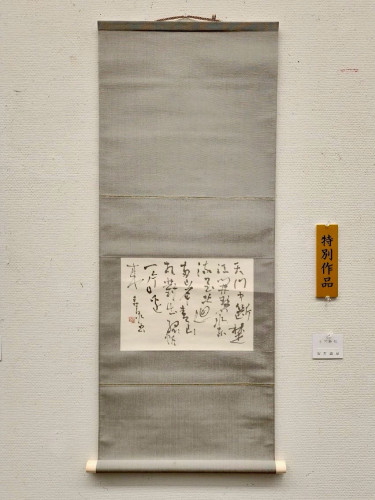 天門中断楚
江開碧水東
流至此廻
両岸青山
相対出孤帆
一片日辺
特別作品